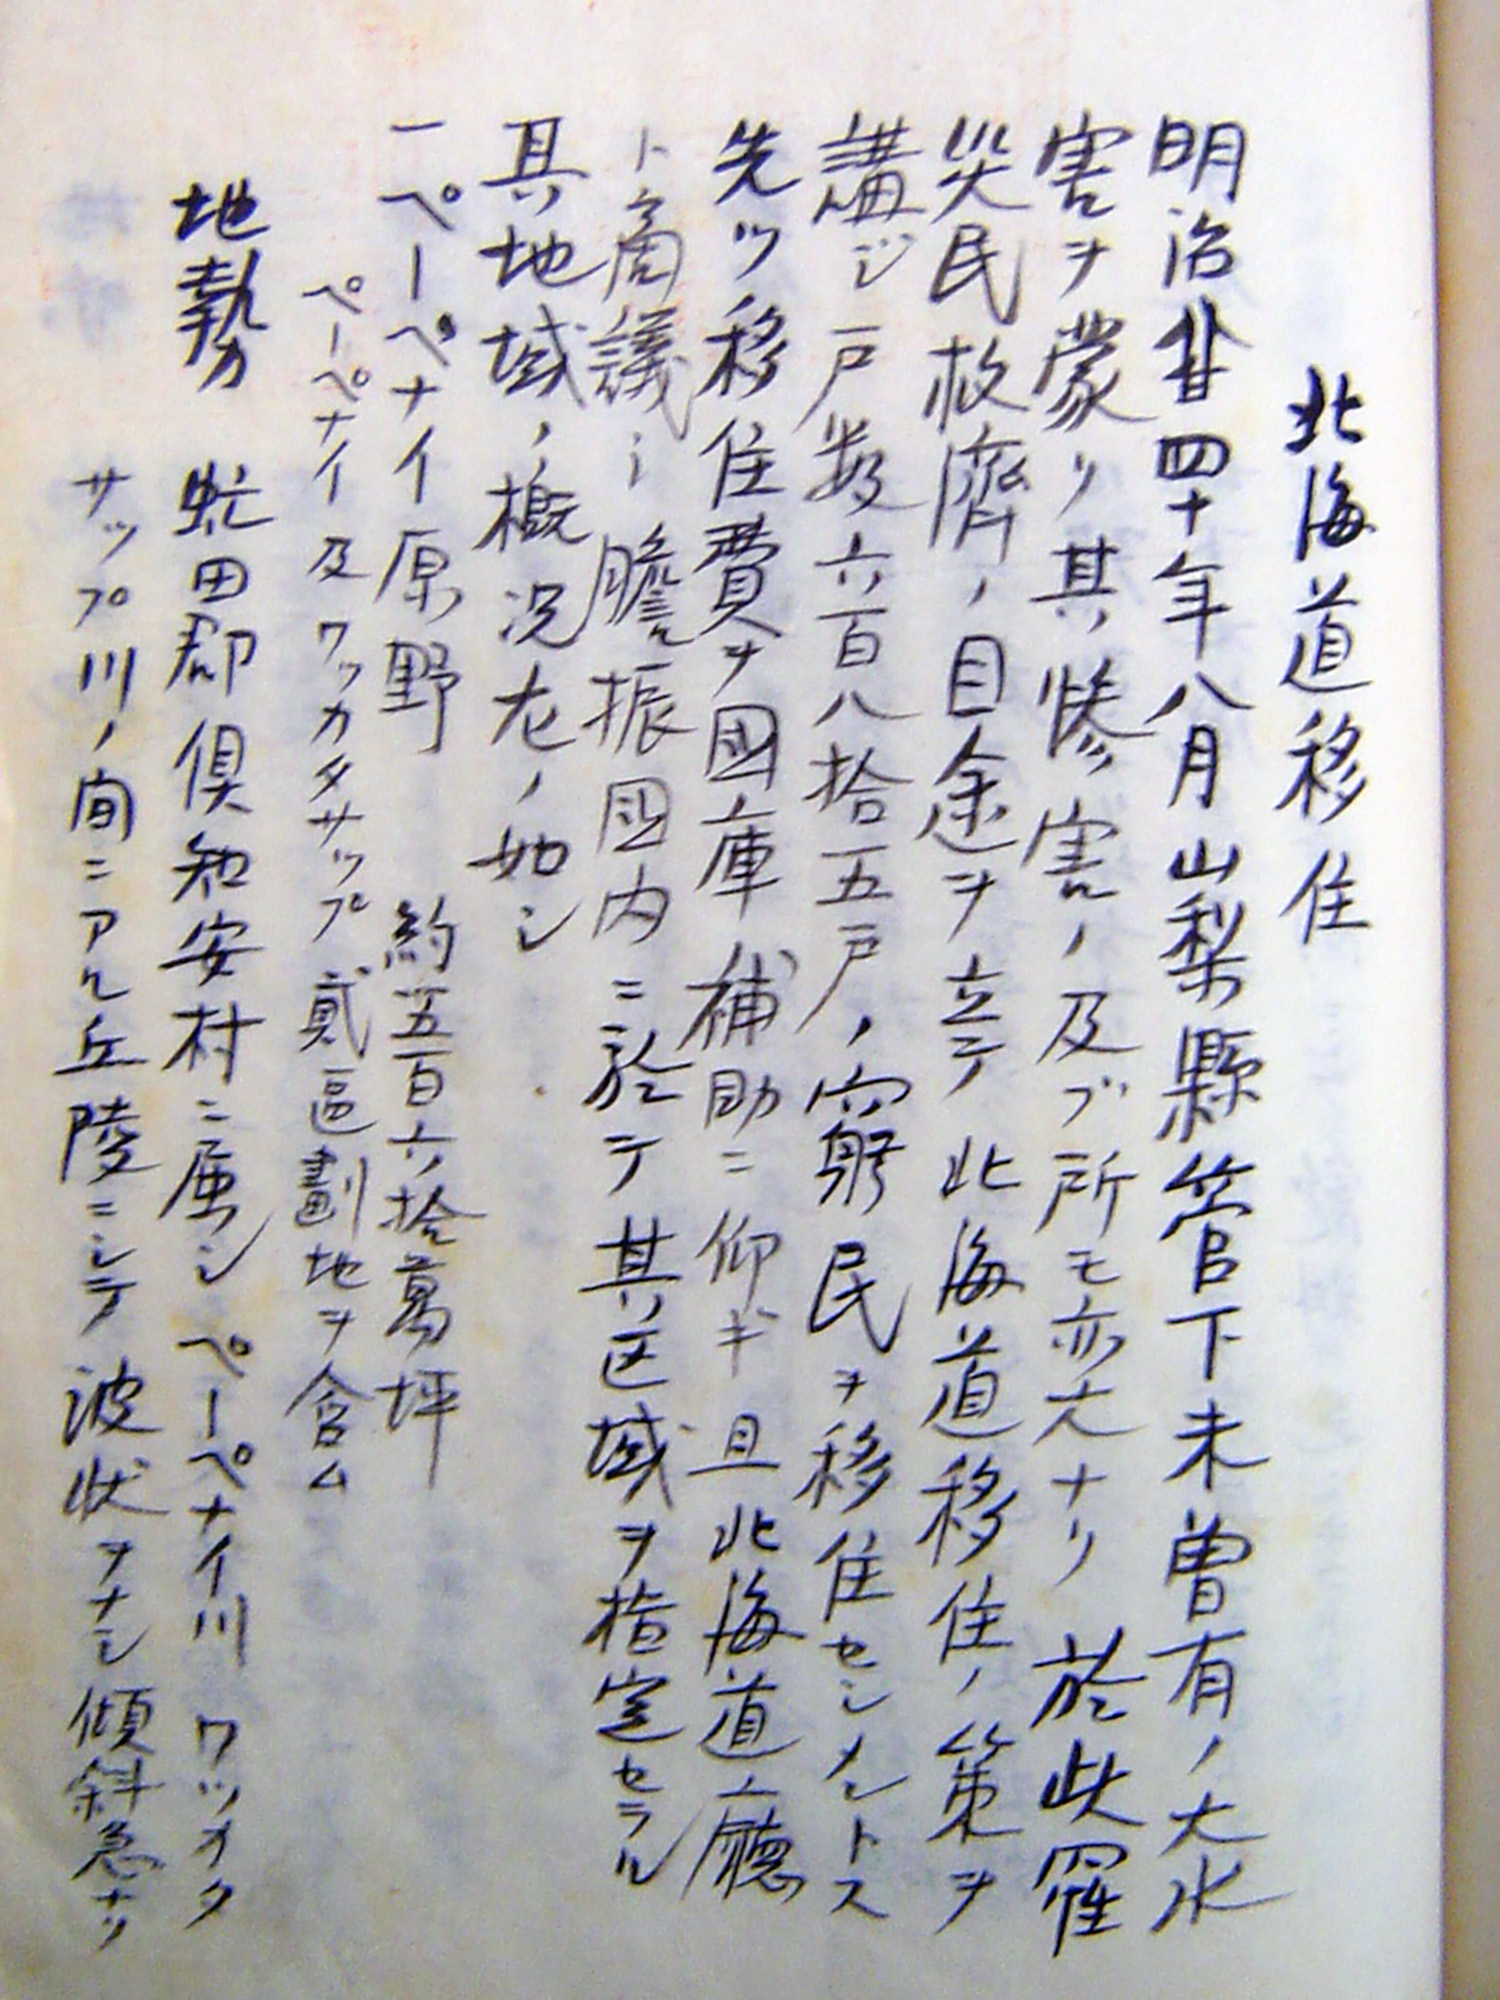 北海道移住
明治廿四十年八月山梨縣管下未曽有ノ大水
害ヲ蒙リ其惨害ノ及ブ所モ亦大ナリ 於此罹
災民救濟ノ目途ヲ立テ 北海道移住ノ策ヲ
講ジ戸数六百八拾五戸ノ窮民ヲ移住センメントス
先ツ移住費ヲ國庫補助ニ仰ギ且北海道廳
ト商議シ 膽振國内ニ於テ其区域ヲ指定セラル
其地域ノ概況左ノ如シ
一ペーペナイ原野 約五百六拾萬坪
ペーペナイ及ワッカタサップ貳區劃地ヲ含ム
地勢 虻田郡倶知安村ニ属シ ペーペナイ川 ワッカタ
サップ川ノ間ニアル丘陵ニシテ波状ヲナシ傾斜急ナリ